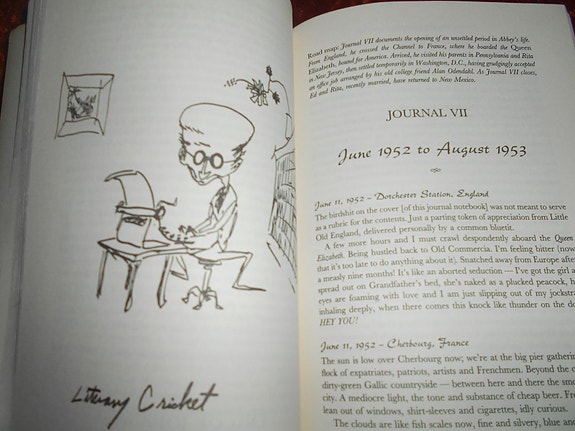 Literary Cricket
Road map: Journal VII documents the opening of an unsettled period in Abbey's life.
From England, he crossed the Channel to France, where he boarded the Queen
Elizabeth, bound for America. Arrived, he visited his parents in Pennsylvania and Rita
in New Jersey, then settled temporarily in Washington, D.C., having grudgingly accepted
an office job arranged by his old college friend Alan Odendahl. As Journal VII closes,
Ed and Rita, recently married, have returned to New Mexico.
JOURNAL VII
June 1952 to August 1953
June 11, 1952 – Dorchester Station, England
The birdshit on the cover [of this journal notebook] was not meant to serve
as a rubric for the contents. Just a parting token of appreciation from Little
Old England, delivered personally by a common bluetit.
A few more hours and I must crawl despondently aboard the Queen
Elizabeth. Being hustled back to Old Commercia. I'm feeling bitter (now
that it's too late to do anything about it). Snatched away from Europe after
a measly nine months! It's like an aborted seduction — I've got the girl a
spread out on Grandfather's bed, she's naked as a plucked peacock, h
eyes are foaming with love and I am just slipping out of my jockstra
inhaling deeply, when there comes this knock like thunder on the do
HEY YOU!
June 11, 1952 – Cherbourg, France
The sun is low over Cherbourg now; we're at the big pier gatherin
flock of expatriates, patriots, artists and Frenchmen. Beyond the c
dirty-green Gallic countryside — between here and there the smo
city. A mediocre light, the tone and substance of cheap beer. Fr
lean out of windows, shirt-sleeves and cigarettes, idly curious.
The clouds are like fish scales now, fine and silvery, blue and